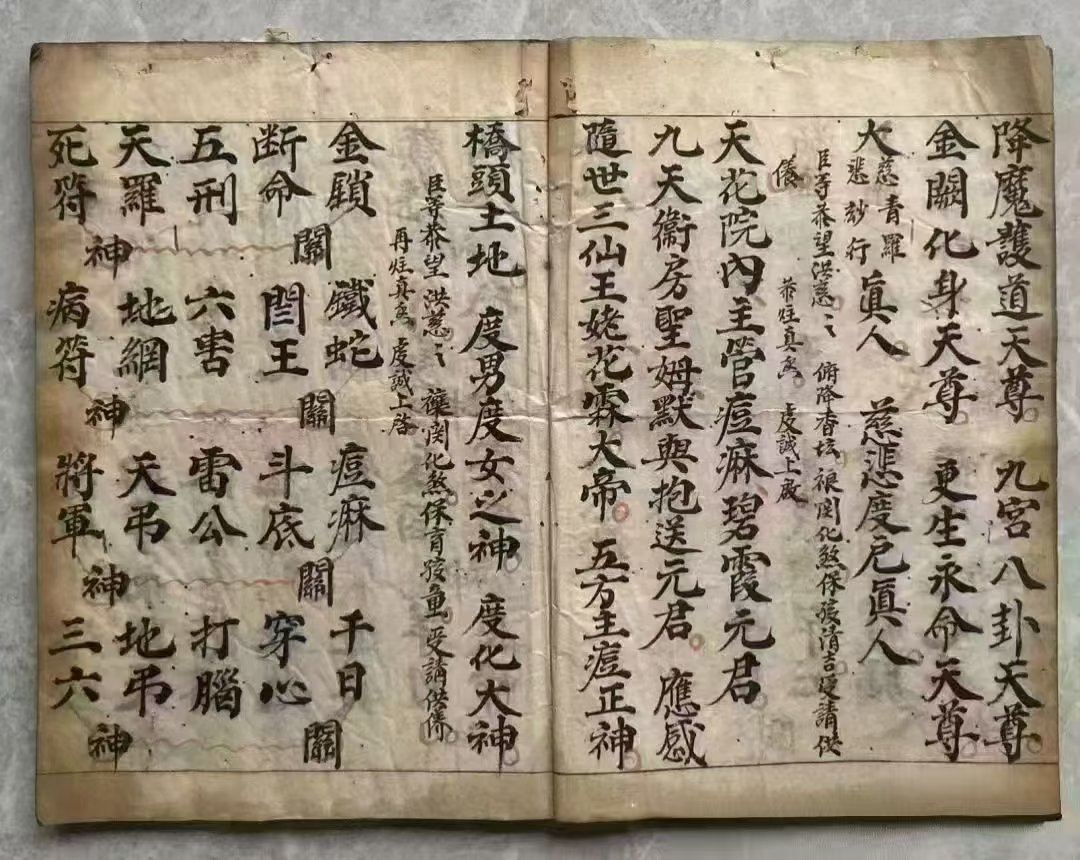 降魔護道天尊 九宮八卦天尊
金闕化身天尊 更生永命天尊
大慈青羅悲玅行真人 慈悲度厄真人
臣等恭望洪慈〻俯降香坛禳関化煞保孩清吉受請供
儀 恭炷真香 虔誠上啟
天花院內主管痘痳碧霞元君
九天衛房聖姆默與抱送元君 應感
隨世三仙王姥花霖大帝 五方主痘正神
橋頭土地 度男度女之神 度化大神
臣等恭望洪慈〻禳関化煞保育孩童受請供儀
再炷真香虔誠上啓
金鎖 鐵蛇 痘痳 千日
断命關 閆王關 斗底關 穿心關
五刑 六害 雷公 打腦
天羅 地網 天弔 地弔
死符神 病符神 將軍神 三六神